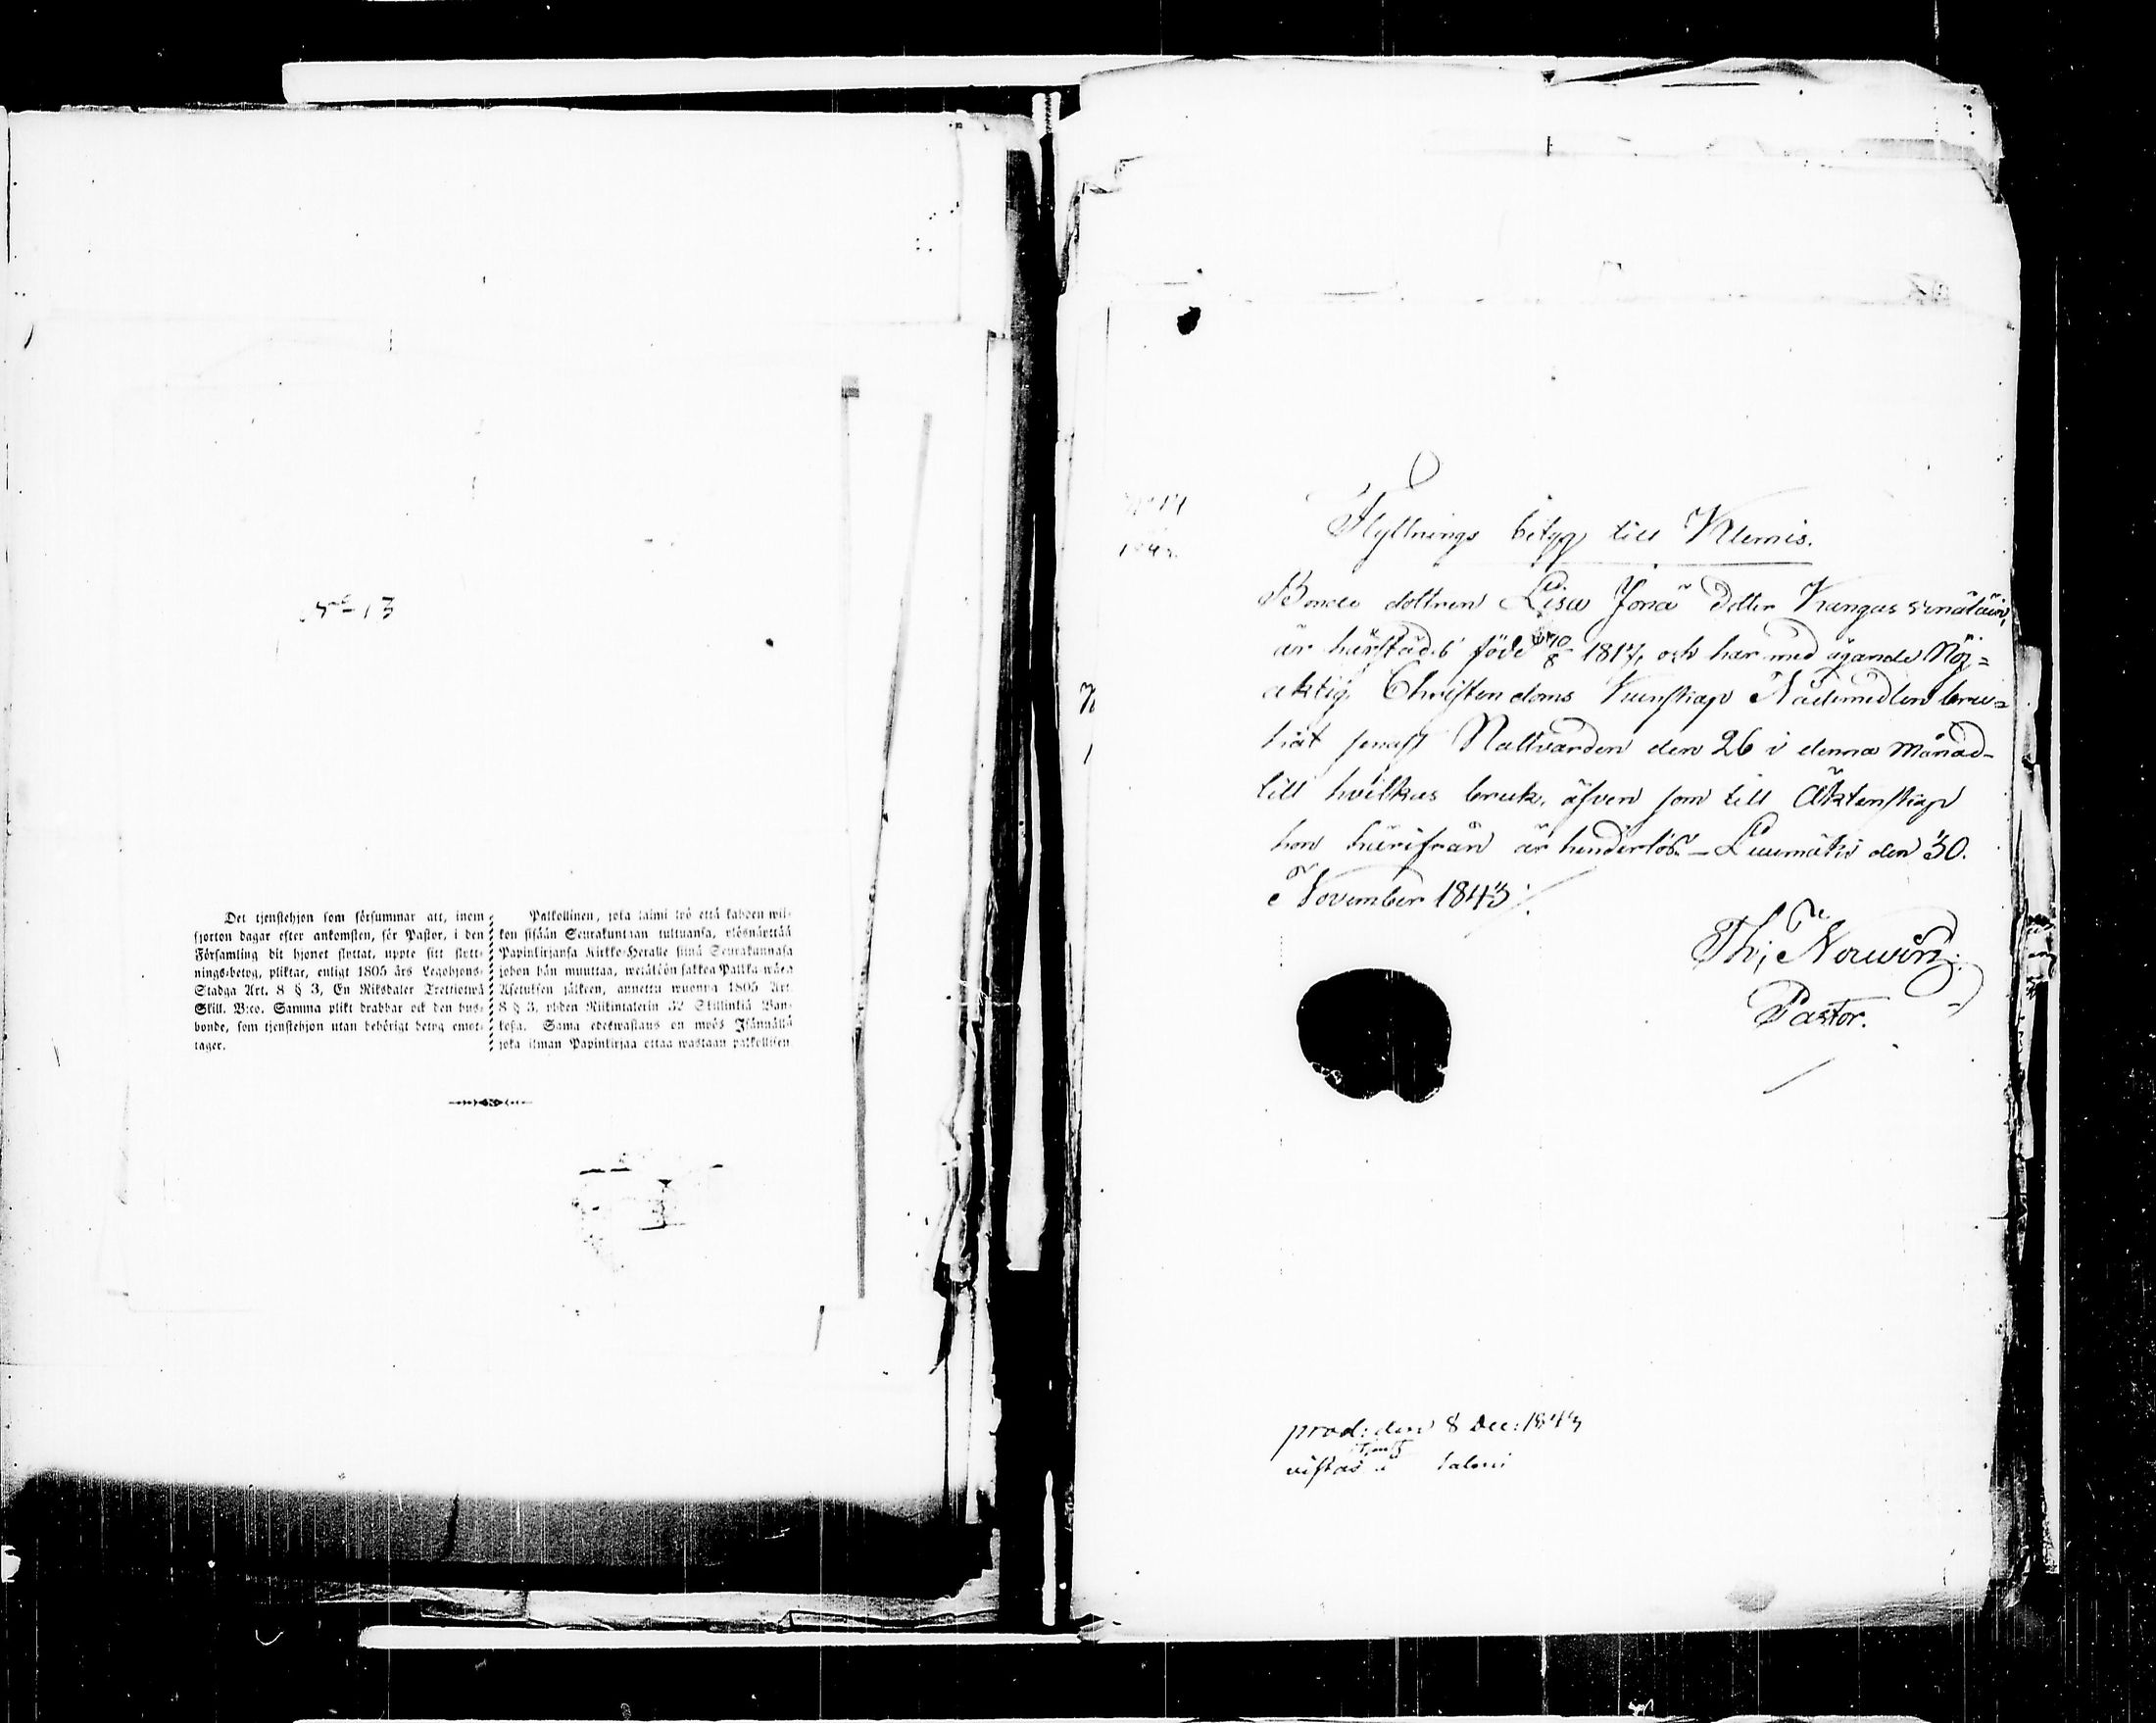 No 13
Det tjenstehjon som försummar att, inom
fjorton dagar efter ankomsten, för Pastor, i den
Församling dit hjonet flyttat, uppte sitt flytt-
nings-betyg, pliktar, enligt 1805 års Legohjons-
Stadga Art. 8 § 3, En Riksdaler Trettiotwå
Skill. B:co. Samma plikt drabbar ock den hus-
bonde, som tjenstehjon utan behörigt betyg emot-
tager.
Palkollinen, joka laimi lyö että kahden wii-
kon sisään Seurakuntaan tultuansa, ylösnäyttää
Papinkirjansa Kirkko-Heralle siinä Seurakunnasa
johon hän muuttaa, wetäköön sakkoa Palkka-wäen
Asetuksen jälkeen, annettu wuonna 1805 Art.
8 § 3, yhden Riikintalerin 32 Skillinkiä Ban-
kosa. Sama edeswastaus on myös Isännällä
joka ilman Papinkirjaa ottaa wastaan palkollisen
No 14
Flyttnings betyg till Klemis.
Bonde dottren Lisa Jona dotter Kangas
är härstädes född 10/8 1817, och har med ägande Nöj=
aktig Christendoms Kunskap Nådemedlen bru=
kat senast Nattvarden den 26 i denna Månad
till hvilkas bruk, äfven som till Äktenskap
hon härifrån är hinderlös. – Luumäki den 30.
November 1843.
Th; Norwin
Pastor.
prod: den 8 Dec: 1843
vistas i Salmi